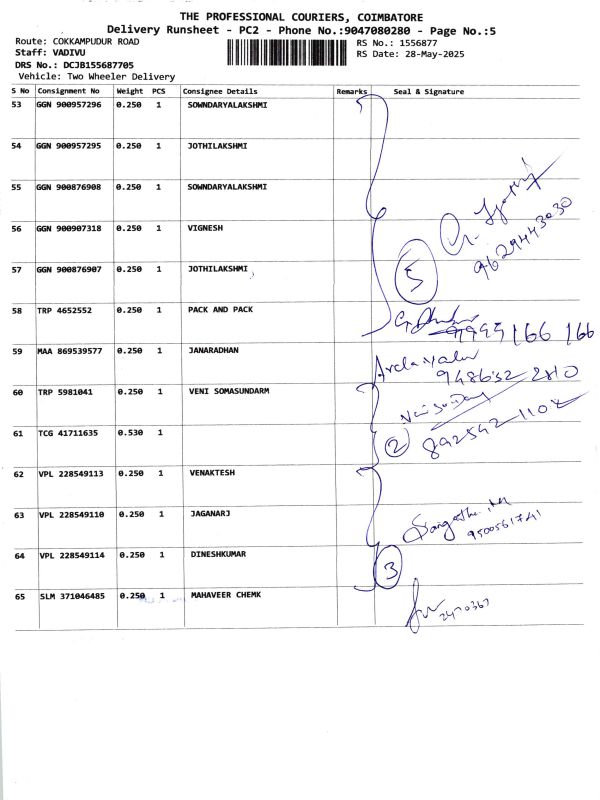 THE PROFESSIONAL COURIERS, COIMBATORE
Delivery Runsheet - PC2 - Phone No.:9047080280 - Page No.:5
Route: COKKAMPUDUR ROAD RS No.: 1556877
Staff: VADIVU RS Date: 28-May-2025
DRS No.: DCJB155687705
Vehicle: Two Wheeler Delivery
S No Consignment No Weight PCS Consignee Details Remarks Seal & Signature
53 GGN 900957296 0.250 1 SOWNDARYALAKSHMI
54 GGN 900957295 0.250 1 JOTHILAKSHMI
55 GGN 900876908 0.250 1 SOWNDARYALAKSHMI
56 GGN 900907318 0.250 1 VIGNESH
9629443030
57 GGN 900876907 0.250 1 JOTHILAKSHMI
5
58 TRP 4652552 0.250 1 PACK AND PACK
166 166
59 MAA 869539577 0.250 1 JANARADHAN
948632 2810
60 TRP 5981041 0.250 1 VENI SOMASUNDARM
61 TCG 41711635 0.530 1
2 892542 1102
62 VPL 228549113 0.250 1 VENAKTESH
63 VPL 228549110 0.250 1 JAGANARJ
9500561741
64 VPL 228549114 0.250 1 DINESHKUMAR
3
65 SLM 371046485 0.250 1 MAHAVEER CHEMK
2470367